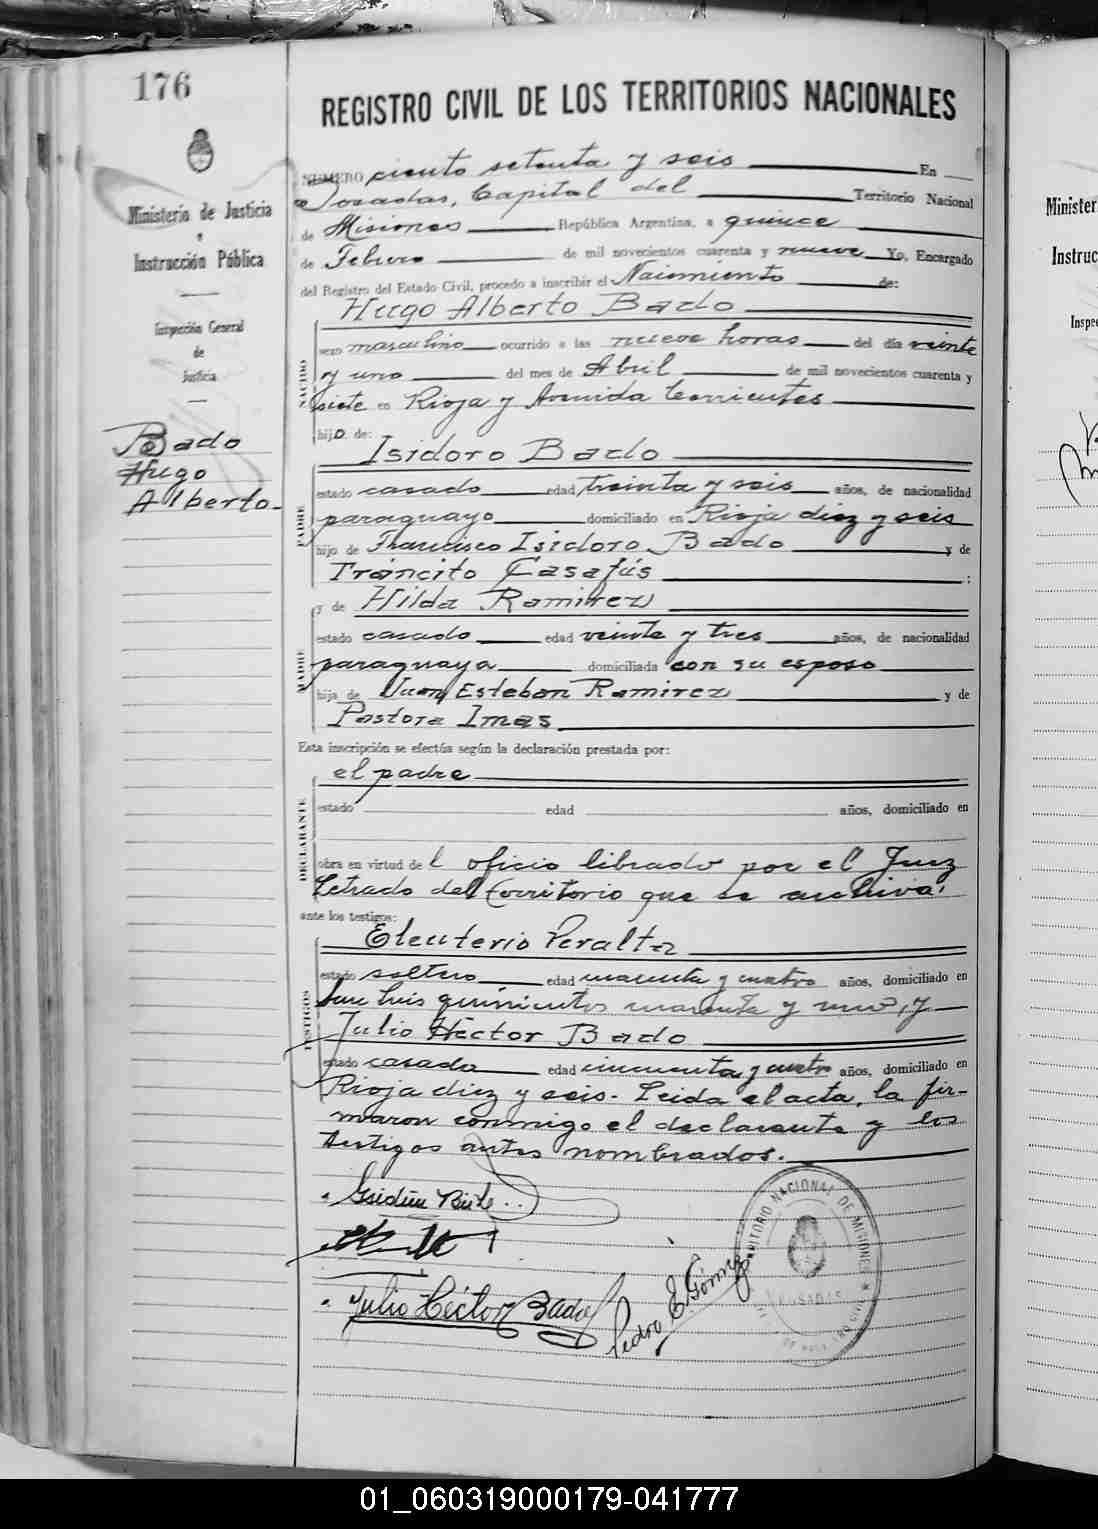 176
REGISTRO CIVIL DE LOS TERRITORIOS NACIONALES
Ministerio de Justicia
e
Instrucción Pública
Inspección General
de
Justicia
Bado
Hugo
Alberto.
NUMERO ciento setenta y seis En
Posadas, Capital del Territorio Nacional
de Misiones República Argentina, a quince
de Febrero de mil novecientos cuarenta y nueve Yo, Encargado
del Registro del Estado Civil, procedo a inscribir el Naicmiento de:
Hugo Alberto Bado
NACIDO
sexo masculino ocurrido a las nueve horas del día veinte
y uno del mes de Abril de mil novecientos cuarenta y
siete en Rioja y Avenida Corrientes
hijo de:
Isidoro Bado
PADRE
estado casado edad treinta y seis años, de nacionalidad
paraguayo domiciliado en Rioja diez y seis
hijo de Francisco Isidoro Bado y de
Tráncito Casafús ;
y de Hilda Ramirez
MADRE
estado casado edad veinte y tres años, de nacionalidad
paraguaya domiciliada con su esposo
hija de Juan Esteban Ramirez y de
Pastora Imas
Esta inscripción se efectúa según la declaración prestada por:
el padre
DECLARANTE
estado edad años, domiciliado en
obra en virtud del oficio librado por el Juez
Letrado del Territorio que se archiva.
ante los testigos:
Eleuterio Peralta
TESTIGOS
estado soltero edad cuarenta y cuatro años, domiciliado en
San Luis quinientos cuarenta y uno, y
Julio Héctor Bado
estado casado edad cincuenta y cuatro años, domiciliado en
Rioja diez y seis. Leida el acta, la fir-
maron conmigo el declarante y los
testigos antes nombrados.
Julio Héctor Bado
Pedro E. Gómez
TERRITORIO NACIONAL DE MISIONES
POSADAS
Minister
Instruc
Inspe
01_060319000179-041777